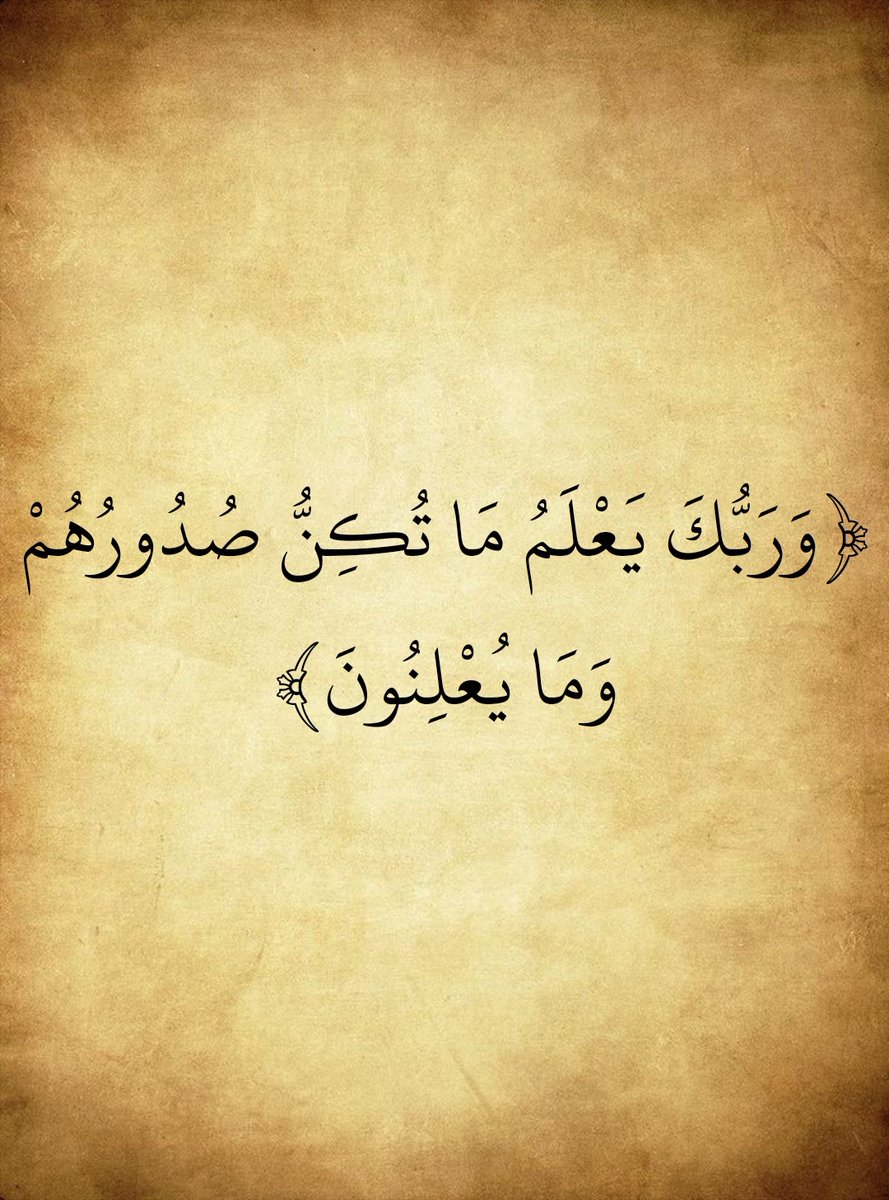 ﴿وَرَبُّكَ يَعْلَمُ مَا تُكِنُّ صُدُورُهُمْ
وَمَا يُعْلِنُونَ﴾